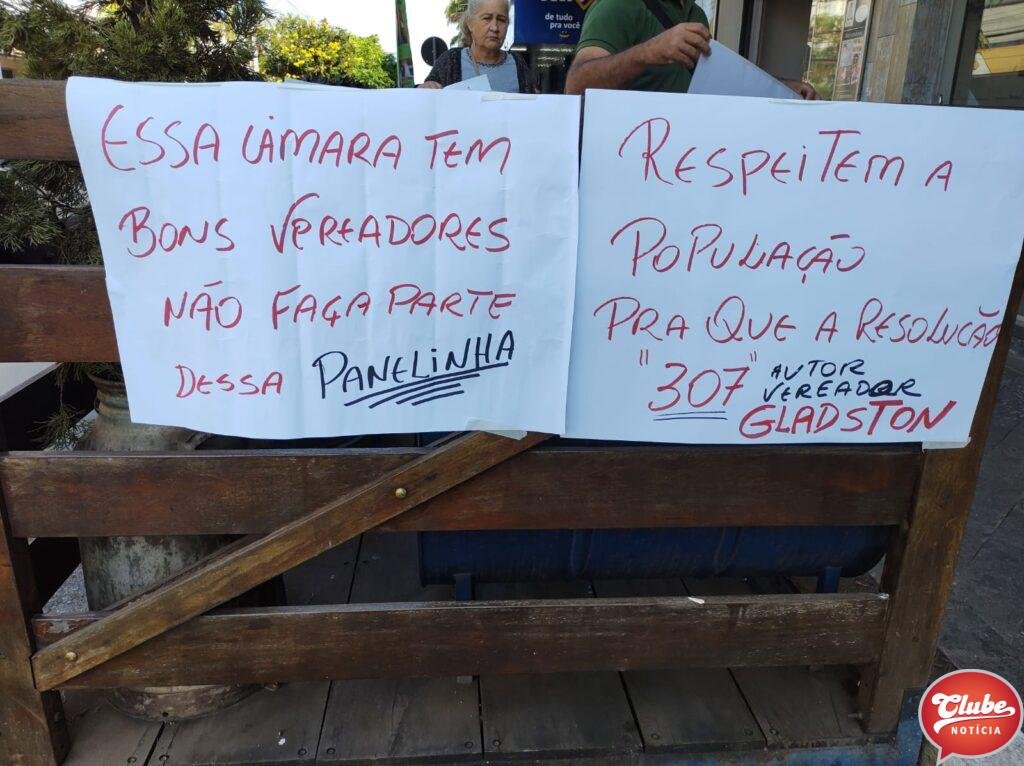 de tudo
pra você
ESSA CÂMARA TEM
BONS VEREADORES
NÃO FAÇA PARTE
DESSA PANELINHA
RESPEITEM A
POPULAÇÃO
PRA QUE A RESOLUCÃO
"307" AUTOR
VEREADOR
GLADSTON
Clube
NOTÍCIA